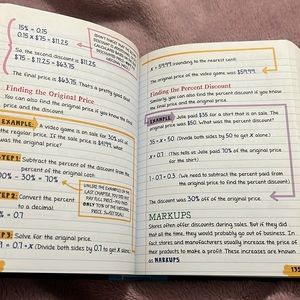 15% = 0.15
0.15 x $75 = $11.25
So, the second discount is $11.25.
$75 - $11.25 = $63.75
The final price is $63.75. That's a pretty good
Finding the Original Price
You can also find the original price if you know the
and the percent discount.
EXAMPLE: A video game is on sale for 30% off
the regular price. If the sale price is $41.99, what
was the original price?
STEP 1: Subtract the percent of the discount from
percent of the original cost.
00% - 30% = 70%
STEP 2: Convert the percent
to a decimal.
% = 0.7
UNLIKE THE EXAMPLES ON
THE LAST PAGE, YOU DID NOT
PAY FULL PRICE—YOU PAID
ONLY 70% OF THE ORIGINAL
PRICE. SWEET DEAL!
3: Solve for the original price.
= 0.7 • x (Divide both sides by 0.7 to get x alone
x = 59.99 (rounding to the nearest cent)
The original price of the video game was $59.99.
Finding the Percent Discount
Similarly, you can also find the percent discount if you know
the final price and the original price.
EXAMPLE: Julie paid $35 for a shirt that is on sale. The
original price was $50. What was the percent discount?
35 = x • 50 (Divide both sides by 50 to get x alone.)
x = 0.7 (This tells us Julie paid 70% of the original price
for the shirt.)
1 - 0.7 = 0.3 (We need to subtract the percent paid from
the original price to find the percent discount.)
The discount was 30% off of the original price.
MARKUPS
Stores often offer discounts during sales. But if they did
that all the time, they would probably go out of business. In
fact, stores and manufacturers usually increase the price of
their products to make a profit. These increases are known
as MARKUPS.